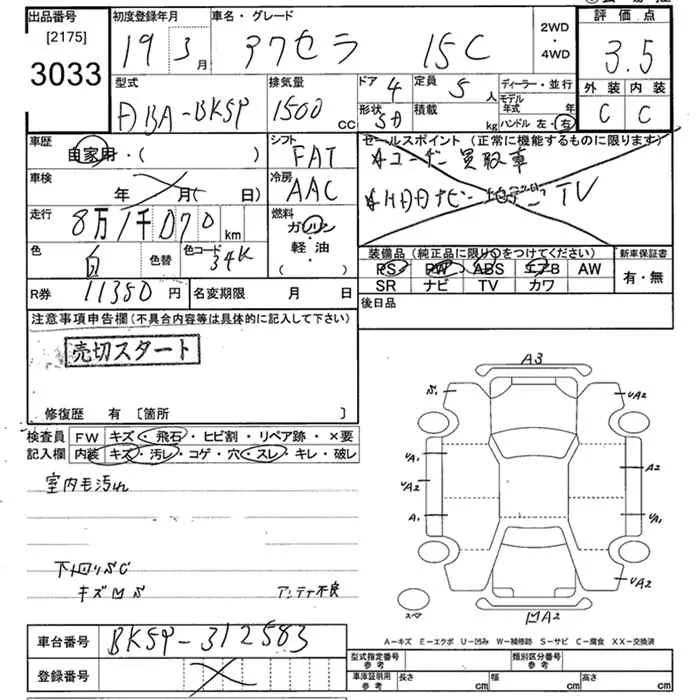 出品番号
[2175]
3033
初度登録年月
19 3月
車名・グレード
アクセラ 15C
2WD
・
4WD
評価点
3.5
外装 内装
C C
型式
DBA-BK5P
排気量
1500cc
ドア 4
定員 5人
形状 5D
積載 kg
ディーラー・並行
モデル年式 年
ハンドル 左・右
車歴
自家用・( )
シフト
FAT
セールスポイント (正常に機能するものに限ります)
車検
年 月( 日)
冷房
AAC
走行
8万1千070km
燃料
ガソリン
軽・油
・( )
色
白
色替
色コード
34K
装備品 (純正品に限り○をつけてください)
PS PW ABS エアB AW
SR ナビ TV カワ
新車保証書
有・無
R券 11380円
名変期限 月 日
後日品
注意事項申告欄 (不具合内容等は具体的に記入して下さい)
売切スタート
修復歴 有 [箇所 ]
検査員
記入欄
FW キズ・飛石・ヒビ割・リペア跡・×要
内装 キズ・汚レ・コゲ・穴・スレ・キレ・破レ
室内毛汚れ
下回りSC
キズ凹S
アンテナ不良
A3
UA2
U/A1
UA2
A1
A2
U/A1
UA2
スペア
凹A2
A-キズ E-エクボ U-凹み W-補修跡 S-サビ C-腐食 XX-交換済
車台番号
BK5P-312583
登録番号
型式指定番号
参考
類別区分番号
参考
車庫証明用
参考
長さ cm
幅 cm
高さ cm